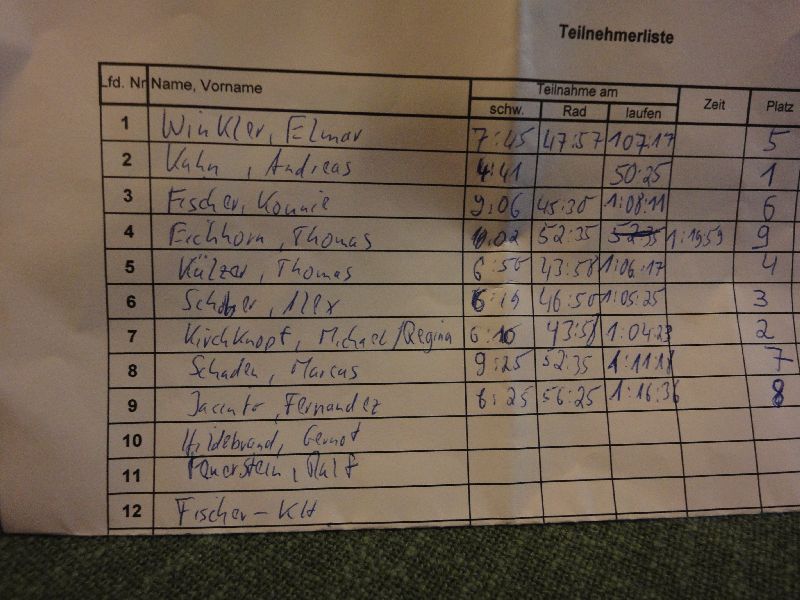 Teilnehmerliste
Lfd. Nr Name, Vorname Teilnahme am Zeit Platz
schw. Rad laufen
1 Winkler, Elmar 7:45 47:57 1:07:17 5
2 Kuhn, Andreas 4:41 50:25 1
3 Fischer, Konnie 9:06 45:30 1:08:11 6
4 Eichhorn, Thomas 52:35 52:35 1:19:59 9
5 Külzer, Thomas 6:50 43:58 1:06:17 4
6 Alex 6:19 46:50 1:05:25 3
7 Kirchknopf, Michael/Regina 43:58 1:04:23 2
8 Schaden, Marcus 9:25 52:35 1:11:18 7
9 Jacinto, Fernandez 6:25 56:25 1:16:36 8
10 Hildebrand, Gernot
11 Feuerstein, Ralf
12 Fischer-KH